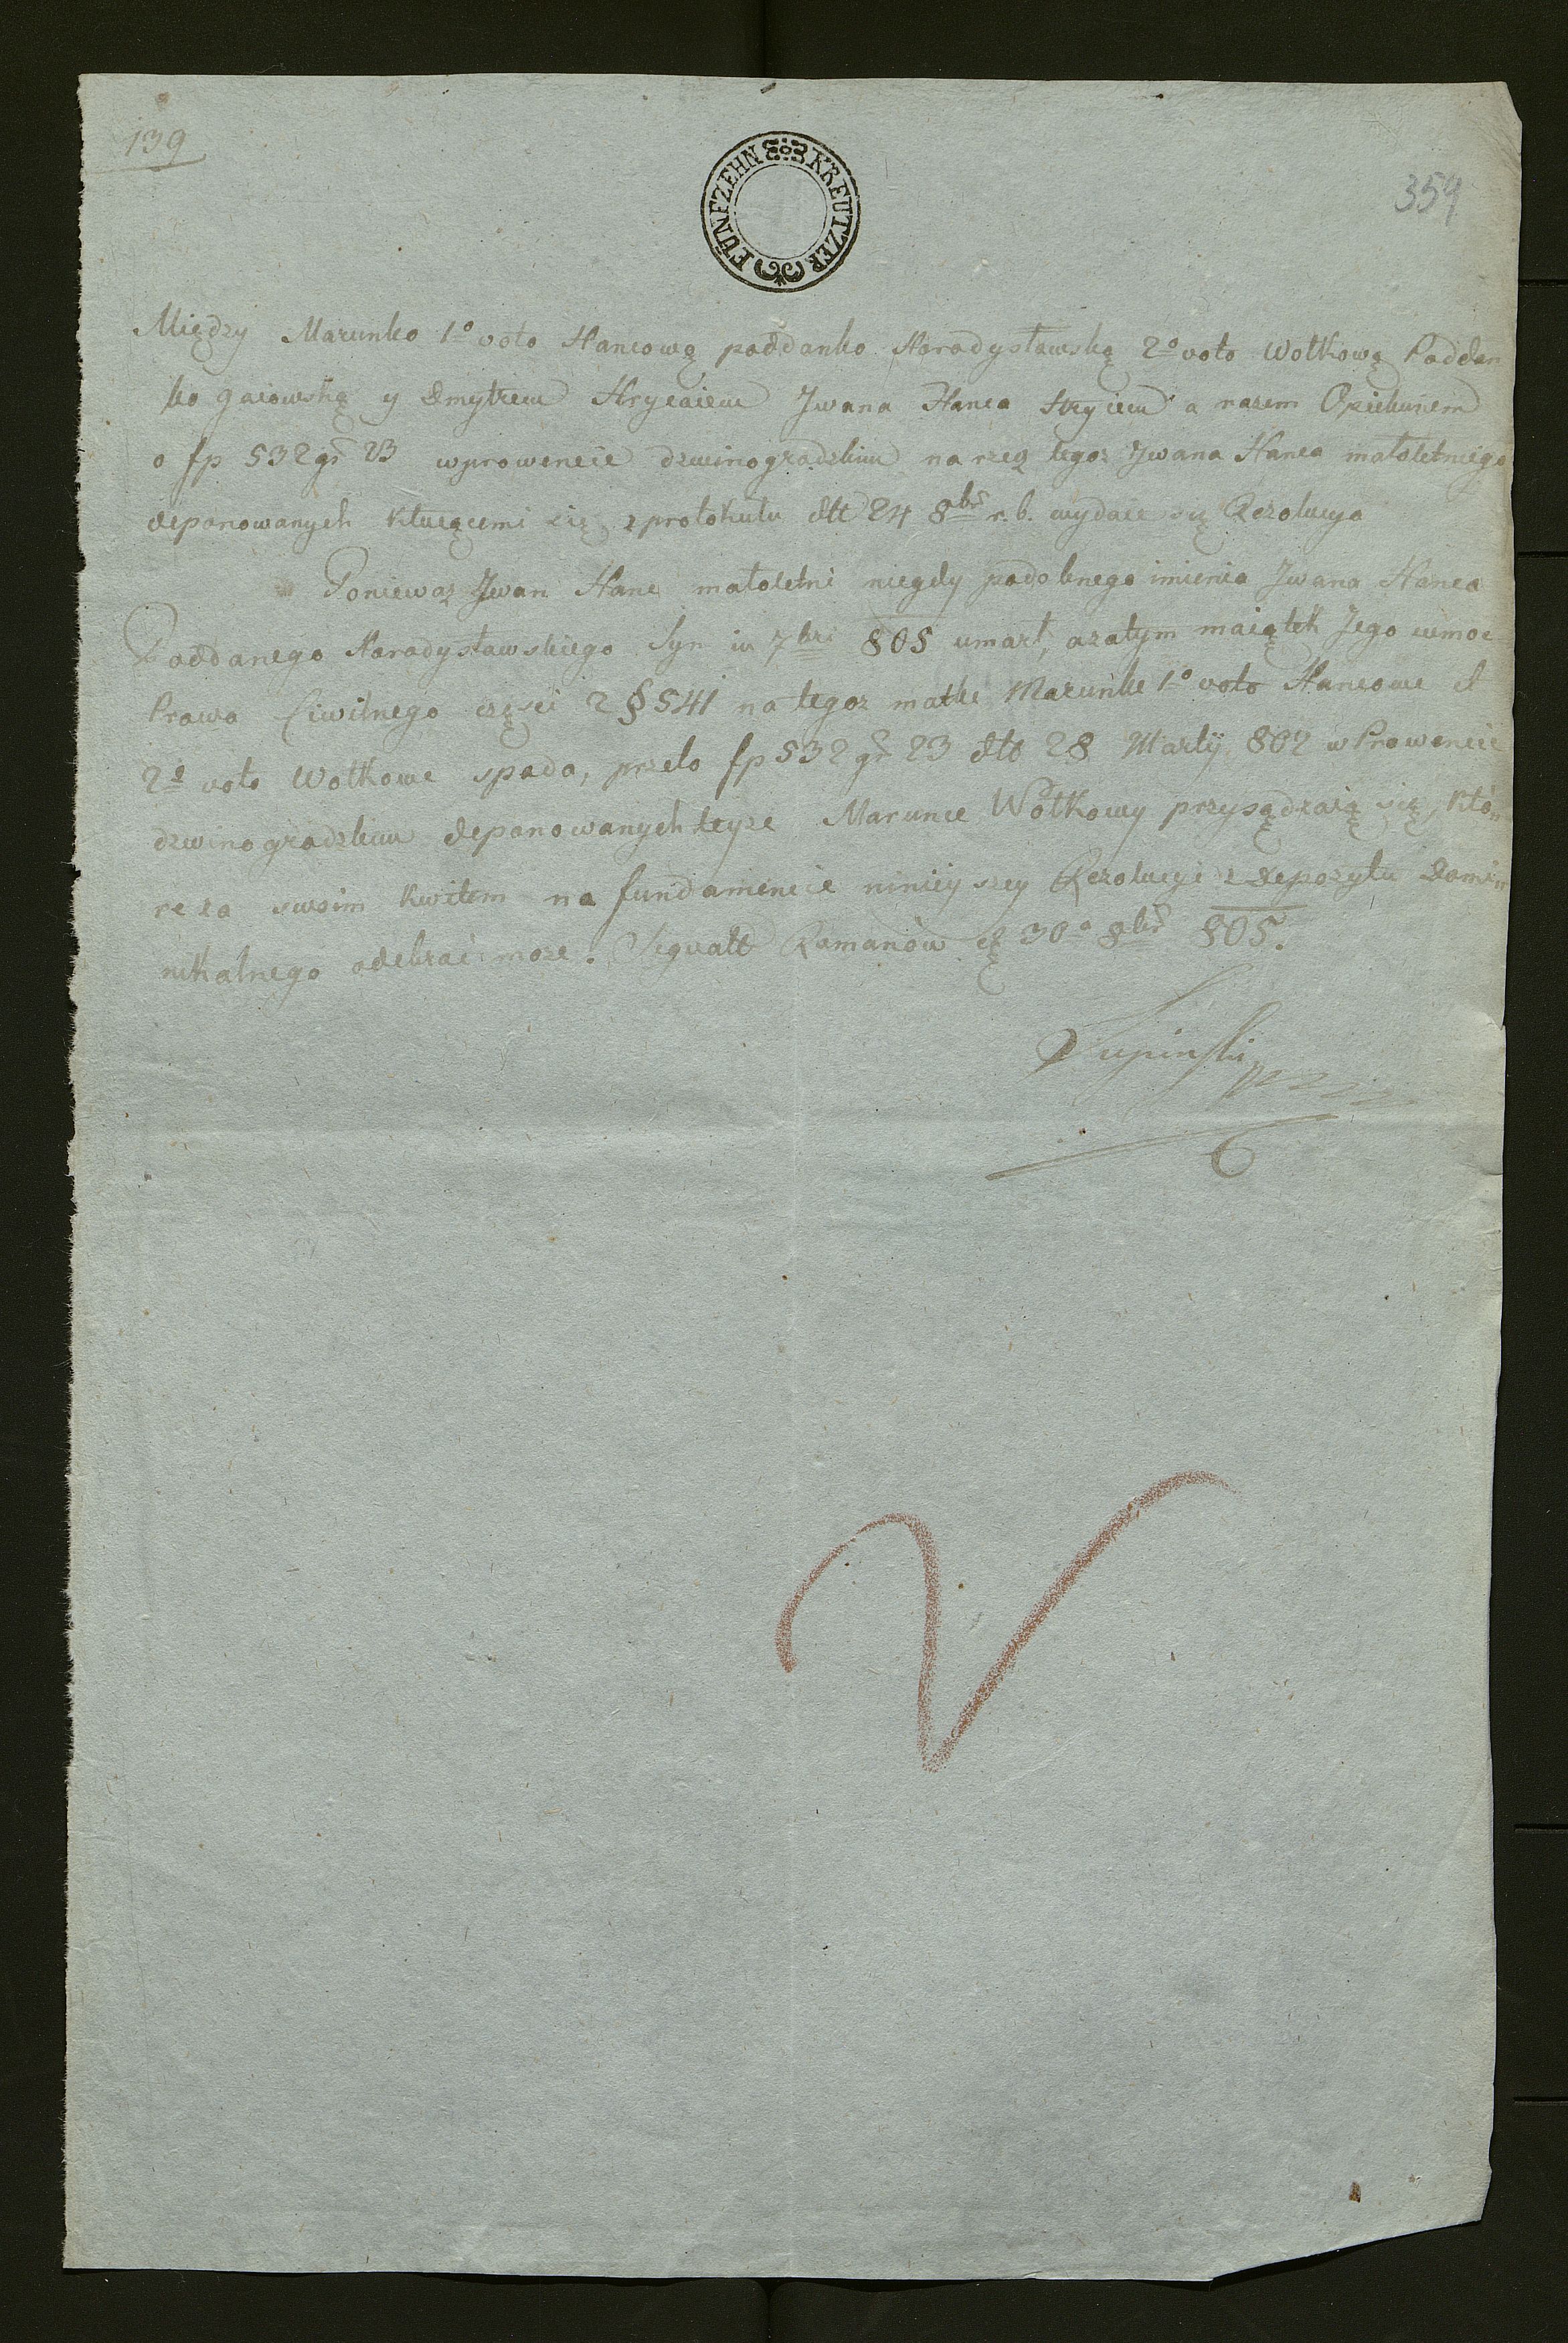 139
FÜNFZEHN KREUTZER
359
Między Marunko 1º voto Hancową poddanko Horodysławską 2º voto Wołkową Poddan
ko gaiowską y Dmytrem Hrycaiem Jwana Hanca Stryiem a razem Opiekunem
o fp 532 gr 23 w prowencie dzwinogradzkim na rzeq tegoż Jwana Hanca małoletniego
deponowanych kłucącemi się z protokułu dtt 24 8brs r. b. wydaie się Rezolucya
Poniewaz Jwan Hanc małoletni niegdy podobnego imienia Jwana Hanca
Poddanego Horodysławskiego Syn in 7bri 805 umarł, azatym maiątek Jego wmoc
Prawa Civilnego części 2 § 541 na tegoz matke Marunke 1º voto Hancowe et
2º voto Wołkowe spada, przeto fp 532 gr 23 dtto 28 Martij 802 w Prowencie
dzwinogradzkim deponowanych teyze Marunce Wołkowy przysądzaią się, któ„
re za swoim kwitem na fundamencie ninieyszey Rezolucyi z Depozytu Domin
nikalnego odebrać może. Signatt Romanów d 30º 8brs 805.
Lupinski